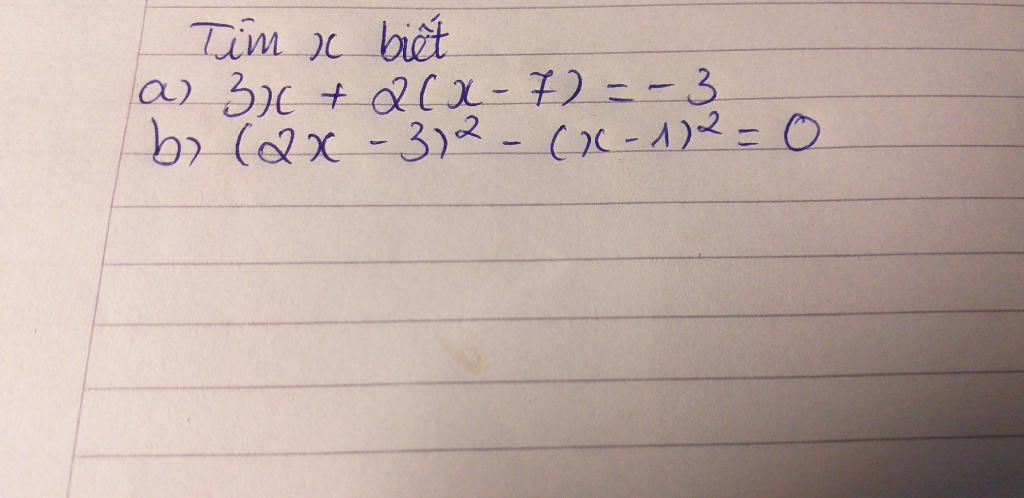 Tìm x biết
a) 3x + 2(x - 7) = - 3
b) (2x - 3)² - (x - 1)² = 0